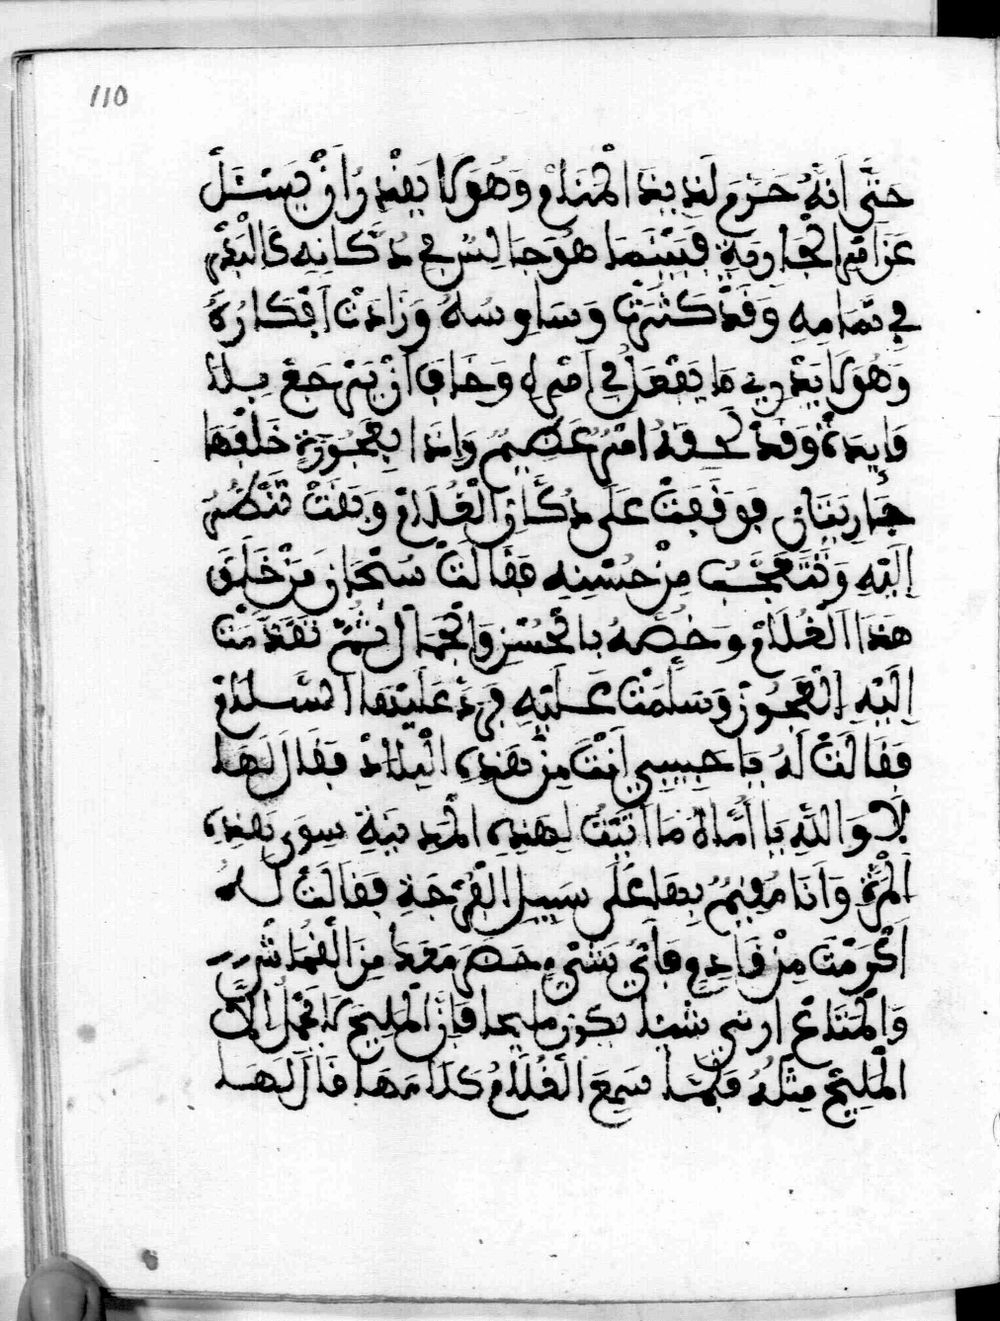 110
حَتَّى اَنَّهُ حَرَمَ لَذِيذَ الْمَنَامِ وَهُوَ لَا يَقْدِرُ اَنْ يَسْئَلَ
عَن امْرِ الْجَارِيَةِ فَبَيْنَمَا هُوَ جَالِسٌ فِي دُكَّانِهِ كَالْبَدْرِ
فِي تَمَامِهِ وَقَدْ كَثُرَتْ وَسَاوِسُهُ وَزَادَتْ اَفْكَارُهُ
وَهُوَ لَا يَدْرِي مَا يَفْعَلُ فِي اَمْرِهِ وَخَافَ اَنْ يَرْجَعَ بِلَا
فَايِدَة وَقَدْ لَحِقَهُ امْرٌ عَظِيمٌ وَاِذَا بِعَجُوزَةٍ خَلْفَهَا
جَارِيَتَانِ فَوَقَفَتْ عَلَى دُكَّانِ الْغُلَامِ وَبَقَتْ تَنْظُرُ
اِلَيْهِ وَتَتَعَجَّبُ مِنْ حُسْنِهِ فَقَالَتْ سُبْحَانَ مَنْ خَلَقَ
هَذَا الْغُلَامْ وَخَصَّهُ بِالْحُسْنِ وَالْجَمَالْ ثُمَّ تَقَدَّمَتْ
اِلَيْهِ الْعَجُوزْ وَسَلَّمَتْ عَلَيْهِ فَرَدَّ عَلَيْهَا السَّلَامْ
فَقَالَتْ لَهُ يَا حَبِيبِي اَنْتَ مِنْ هَذِهِ الْبِلَادْ فَقَالَ لَهَا
لَا وَاللهِ يَا اُمَّاهُ مَا اَتَيْتُ لِهَذِهِ الْمَدِينَةِ سِوَى هَذِهِ
الْمَرَّةِ وَاَنَا مُقِيمٌ بِهَا عَلَى سَبِيلِ الْفُرْجَةِ فَقَالَتْ لَهُ
اُكْرِمْتَ مِنْ قَادِمٍ فَاَيُّ شَيْءٍ حَضَرَ مَعَكَ مِنَ الْقُمَاشْ
وَالْمَتَاعْ ارِنِي شَيْئًا يَكُونُ مَلِيحًا فَاِنَّ الْمَلِيحَ لَا يَحْمِلُ اِلَّا
الْمَلِيحْ مِثْلَهُ فَلَمَّا سَمِعَ الْغُلَامُ كَلَامَهَا قَالَ لَهَا